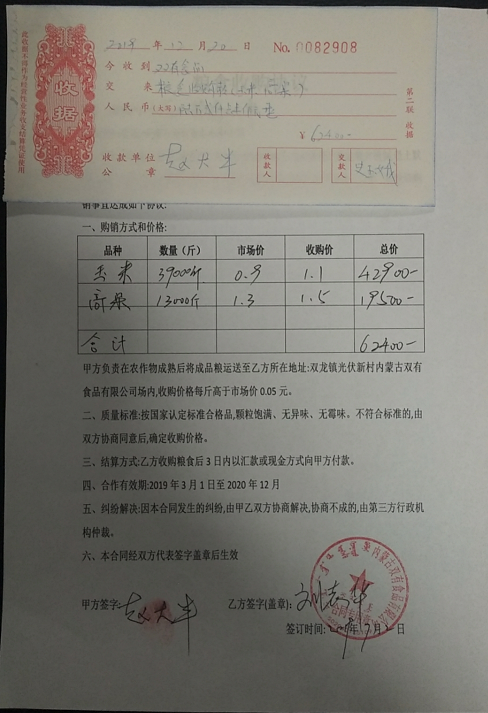 此收据不得作为经营性业务收支结算凭证使用
收据
2019年12月20日 No. 0082908
今收到
交来
人民币(大写)
¥ 62400-
收款单位
公章
赵大牛
收款人
交款人
第二联 收据
销事宜达成如下协议:
一、购销方式和价格:
品种 数量（斤） 市场价 收购价 总价
玉米 39000斤 0.9 1.1 42900-
高粱 13000斤 1.3 1.5 19500-
合计 62400-
甲方负责在农作物成熟后将成品粮运送至乙方所在地址:双龙镇光伏新村内蒙古双有
食品有限公司场内,收购价格每斤高于市场价 0.05 元。
二、质量标准:按国家认定标准合格品,颗粒饱满、无异味、无霉味。不符合标准的,由
双方协商同意后,确定收购价格。
三、结算方式:乙方收购粮食后 3 日内以汇款或现金方式向甲方付款。
四、合作有效期:2019 年 3 月 1 日至 2020 年 12 月
五、纠纷解决:因本合同发生的纠纷,由甲乙双方协商解决,协商不成的,由第三方行政机
构仲裁。
六、本合同经双方代表签字盖章后生效
内蒙古双有食品有限公司
合同专用章
甲方签字: 赵大牛 乙方签字(盖章):
签订时间: 年 7 月 日